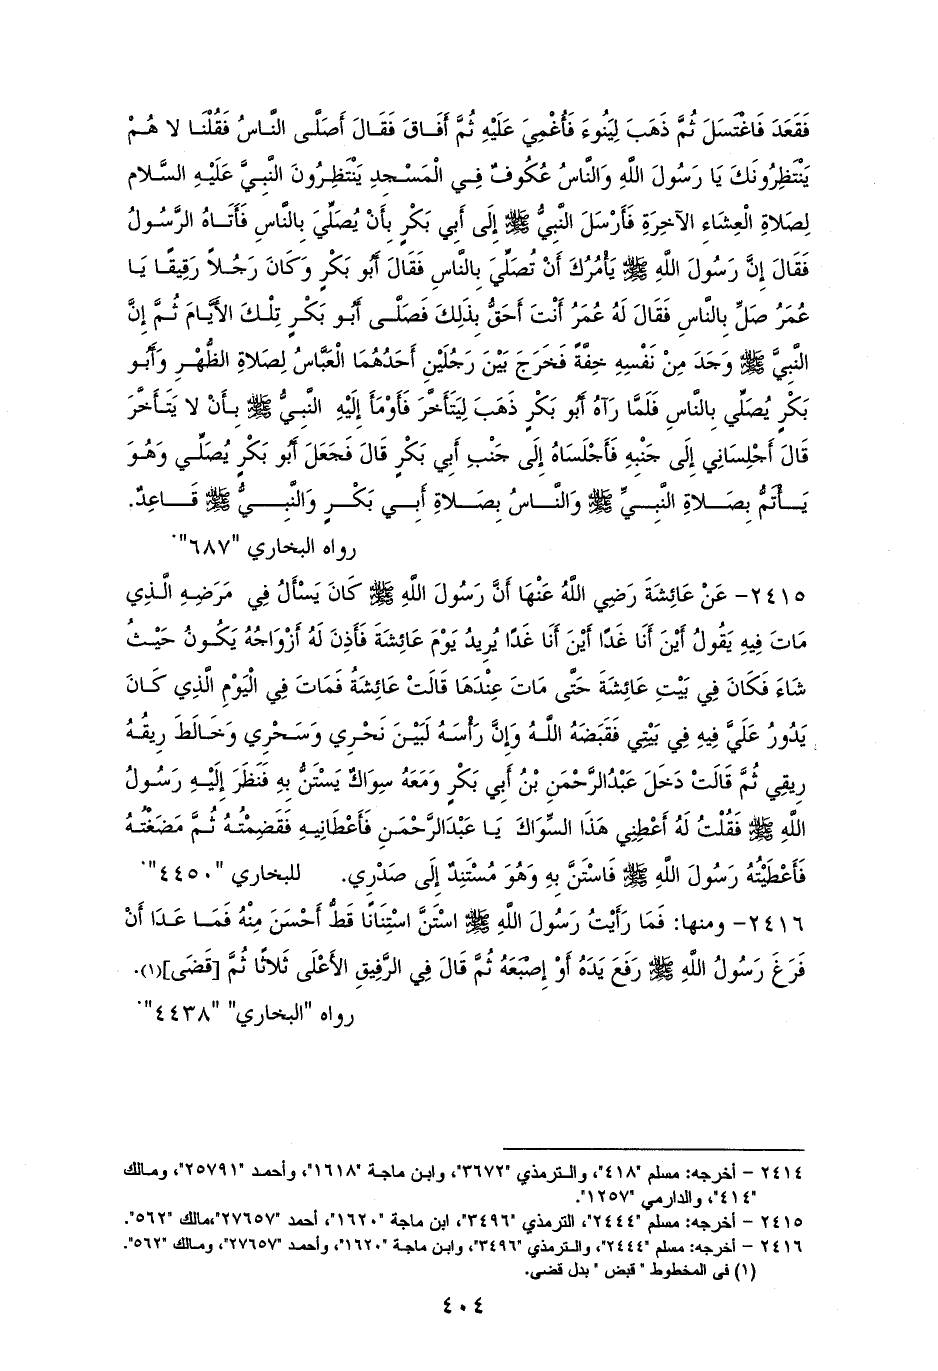 فَقَعَدَ فَاغْتَسَلَ ثُمَّ ذَهَبَ لِيَنُوءَ فَأُغْمِيَ عَلَيْهِ ثُمَّ أَفَـاقَ فَقَـالَ أَصَلَّـى النَّـاسُ فَقُلْنَـا لا هُـمْ
يَنْتَظِرُونَكَ يَا رَسُولَ اللَّهِ وَالنَّاسُ عُكُوفٌ فِـي الْمَسْـجِدِ يَنْتَظِـرُونَ النَّبِـيَّ عَلَيْـهِ السَّـلَام
لِصَلَاةِ الْعِشَاءِ الْآخِرَةِ فَأَرْسَلَ النَّبِيُّ ﷺ إِلَى أَبِي بَكْرٍ بِأَنْ يُصَلِّيَ بِالنَّاسِ فَأَتَـاهُ الرَّسُولُ
فَقَالَ إِنَّ رَسُولَ اللَّهِ ﷺ يَأْمُرُكَ أَنْ تُصَلِّيَ بِالنَّاسِ فَقَالَ أَبُو بَكْرٍ وَكَانَ رَجُـلاً رَقِيقًـا يَـا
عُمَرُ صَلِّ بِالنَّاسِ فَقَالَ لَهُ عُمَرُ أَنْتَ أَحَقُّ بِذَلِكَ فَصَلَّـى أَبُـو بَكْـرٍ تِلْـكَ الْأَيَّـامَ ثُـمَّ إِنَّ
النَّبِيَّ ﷺ وَجَدَ مِنْ نَفْسِهِ خِفَّةً فَخَرَجَ بَيْنَ رَجُلَيْنِ أَحَدُهُمَا الْعَبَّاسُ لِصَلَاةِ الظُّهْـرِ وَأَبُـو
بَكْرٍ يُصَلِّي بِالنَّاسِ فَلَمَّا رَآهُ أَبُو بَكْرٍ ذَهَبَ لِيَتَأَخَّرَ فَأَوْمَأَ إِلَيْهِ النَّبِيُّ ﷺ بِـأَنْ لا يَتَـأَخَّرَ
قَالَ أَجْلِسَانِي إِلَى جَنْبِهِ فَأَجْلَسَاهُ إِلَى جَنْبِ أَبِي بَكْرٍ قَالَ فَجَعَلَ أَبُو بَكْرٍ يُصَلِّـي وَهُـوَ
يَـأْتَمُّ بِصَـلَاةِ النَّبِـيِّ ﷺ وَالنَّـاسُ بِصَـلَاةِ أَبِـي بَكْـرٍ وَالنَّبِـيُّ ﷺ قَـاعِدٌ.
رواه البخاري "٦٨٧".
٢٤١٥- عَنْ عَائِشَةَ رَضِي اللَّهُ عَنْهَا أَنَّ رَسُولَ اللَّهِ ﷺ كَانَ يَسْأَلُ فِي مَرَضِـهِ الَّـذِي
مَاتَ فِيهِ يَقُولُ أَيْنَ أَنَا غَدًا أَيْنَ أَنَا غَدًا يُرِيدُ يَوْمَ عَائِشَةَ فَأَذِنَ لَهُ أَزْوَاجُهُ يَكُـونُ حَيْـثُ
شَاءَ فَكَانَ فِي بَيْتِ عَائِشَةَ حَتَّى مَاتَ عِنْدَهَا قَالَتْ عَائِشَةُ فَمَاتَ فِي الْيَوْمِ الَّذِي كَـانَ
يَدُورُ عَلَيَّ فِيهِ فِي بَيْتِي فَقَبَضَهُ اللَّـهُ وَإِنَّ رَأْسَـهُ لَبَيْـنَ نَحْـرِي وَسَـحْرِي وَخَـالَطَ رِيقُـهُ
رِيقِي ثُمَّ قَالَتْ دَخَلَ عَبْدُالرَّحْمَنِ بْنُ أَبِي بَكْرٍ وَمَعَهُ سِوَاكٌ يَسْتَنُّ بِهِ فَنَظَرَ إِلَيْـهِ رَسُـولُ
اللَّهِ ﷺ فَقُلْتُ لَهُ أَعْطِنِي هَذَا السِّوَاكَ يَا عَبْدَالرَّحْمَـنِ فَأَعْطَانِيـهِ فَقَضِمْتُـهُ ثُـمَّ مَضَغْتُـهُ
فَأَعْطَيْتُهُ رَسُولَ اللَّهِ ﷺ فَاسْتَنَّ بِهِ وَهُوَ مُسْتَنِدٌ إِلَى صَدْرِي. للبخاري "٤٤٥٠".
٢٤١٦- ومنها: فَمَا رَأَيْتُ رَسُولَ اللَّهِ ﷺ اسْتَنَّ اسْتِنَانًا قَطُّ أَحْسَنَ مِنْهُ فَمَـا عَـدَا أَنْ
فَرَغَ رَسُولُ اللَّهِ ﷺ رَفَعَ يَدَهُ أَوْ إِصْبَعَهُ ثُمَّ قَالَ فِي الرَّفِيقِ الْأَعْلَى ثَلَاثًا ثُمَّ [قَضَى](١).
رواه "البخاري" "٤٤٣٨".
٢٤١٤ - أخرجه: مسلم "٤١٨"، والـترمذي "٣٦٧٢"، وابن ماجة "١٦١٨"، وأحمد "٢٥٧٩١"، ومـالك
"٤١٤"، والدارمي "١٢٥٧".
٢٤١٥ - أخرجه: مسلم "٢٤٤٤"، الترمذي "٣٤٩٦"، ابن ماجة "١٦٢٠"، أحمد "٢٧٦٥٧"،مالك "٥٦٢".
٢٤١٦ - أخرجه: مسلم "٢٤٤٤"، والـترمذي "٣٤٩٦"، وابن ماجـة "١٦٢٠"، وأحمد "٢٧٦٥٧"، ومـالك "٥٦٢".
(١) فى المخطوط "قبض" بدل قضى.
٤٠٤